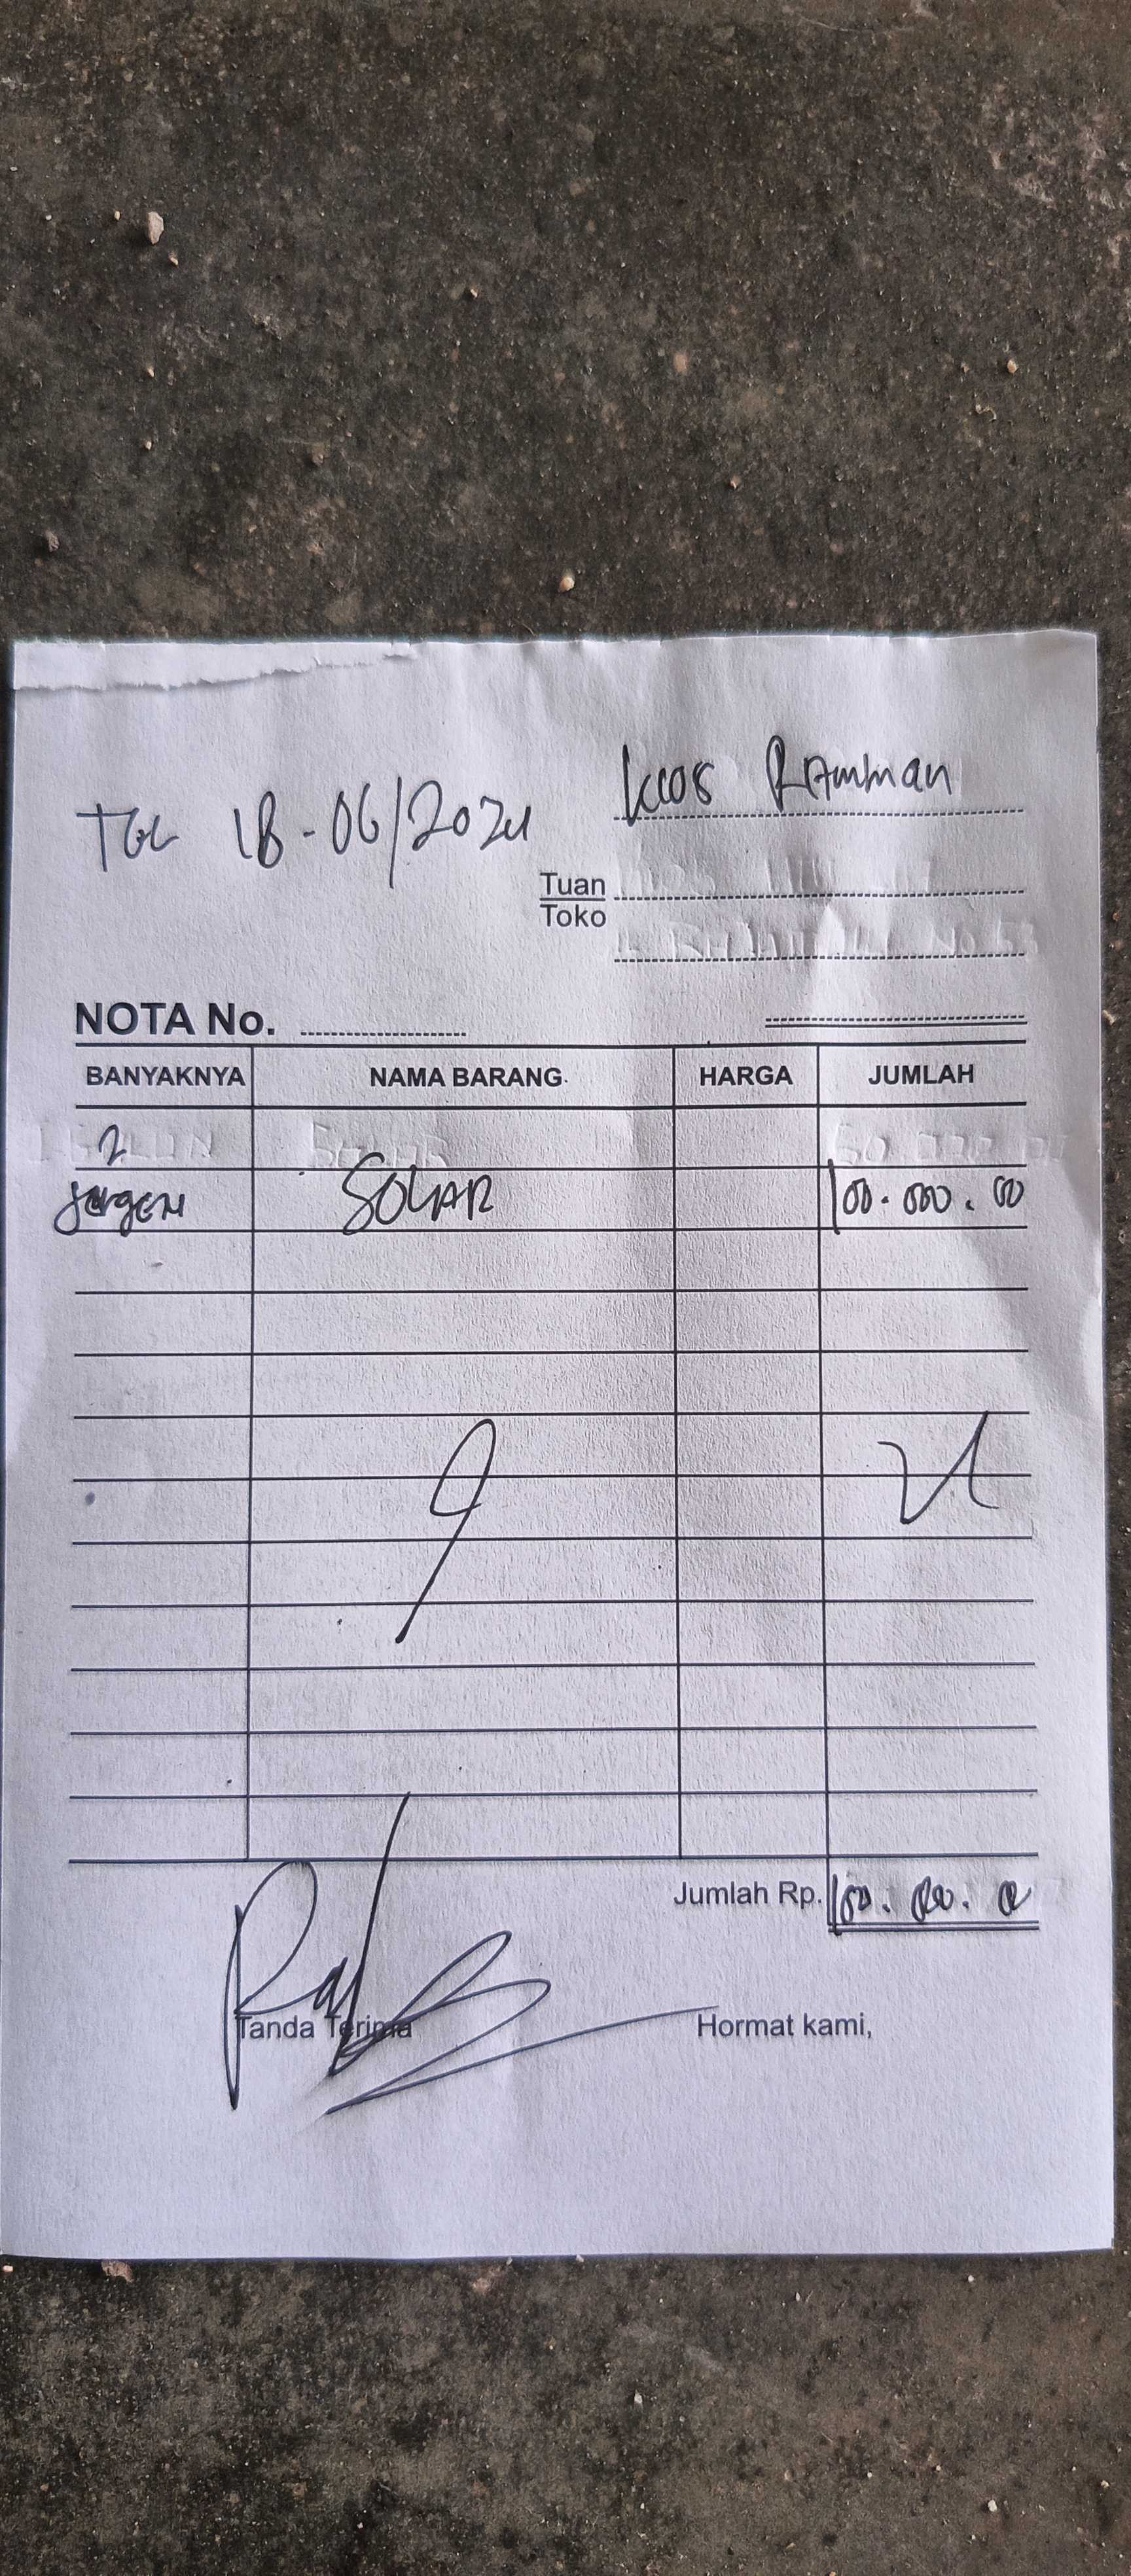 Kios Ramman
TGL 18-06/2024
Tuan
Toko
NOTA No.
BANYAKNYA NAMA BARANG HARGA JUMLAH
2
Jergen SOLAR 100.000.00
Jumlah Rp. 100.000.00
Tanda Terima Hormat kami,